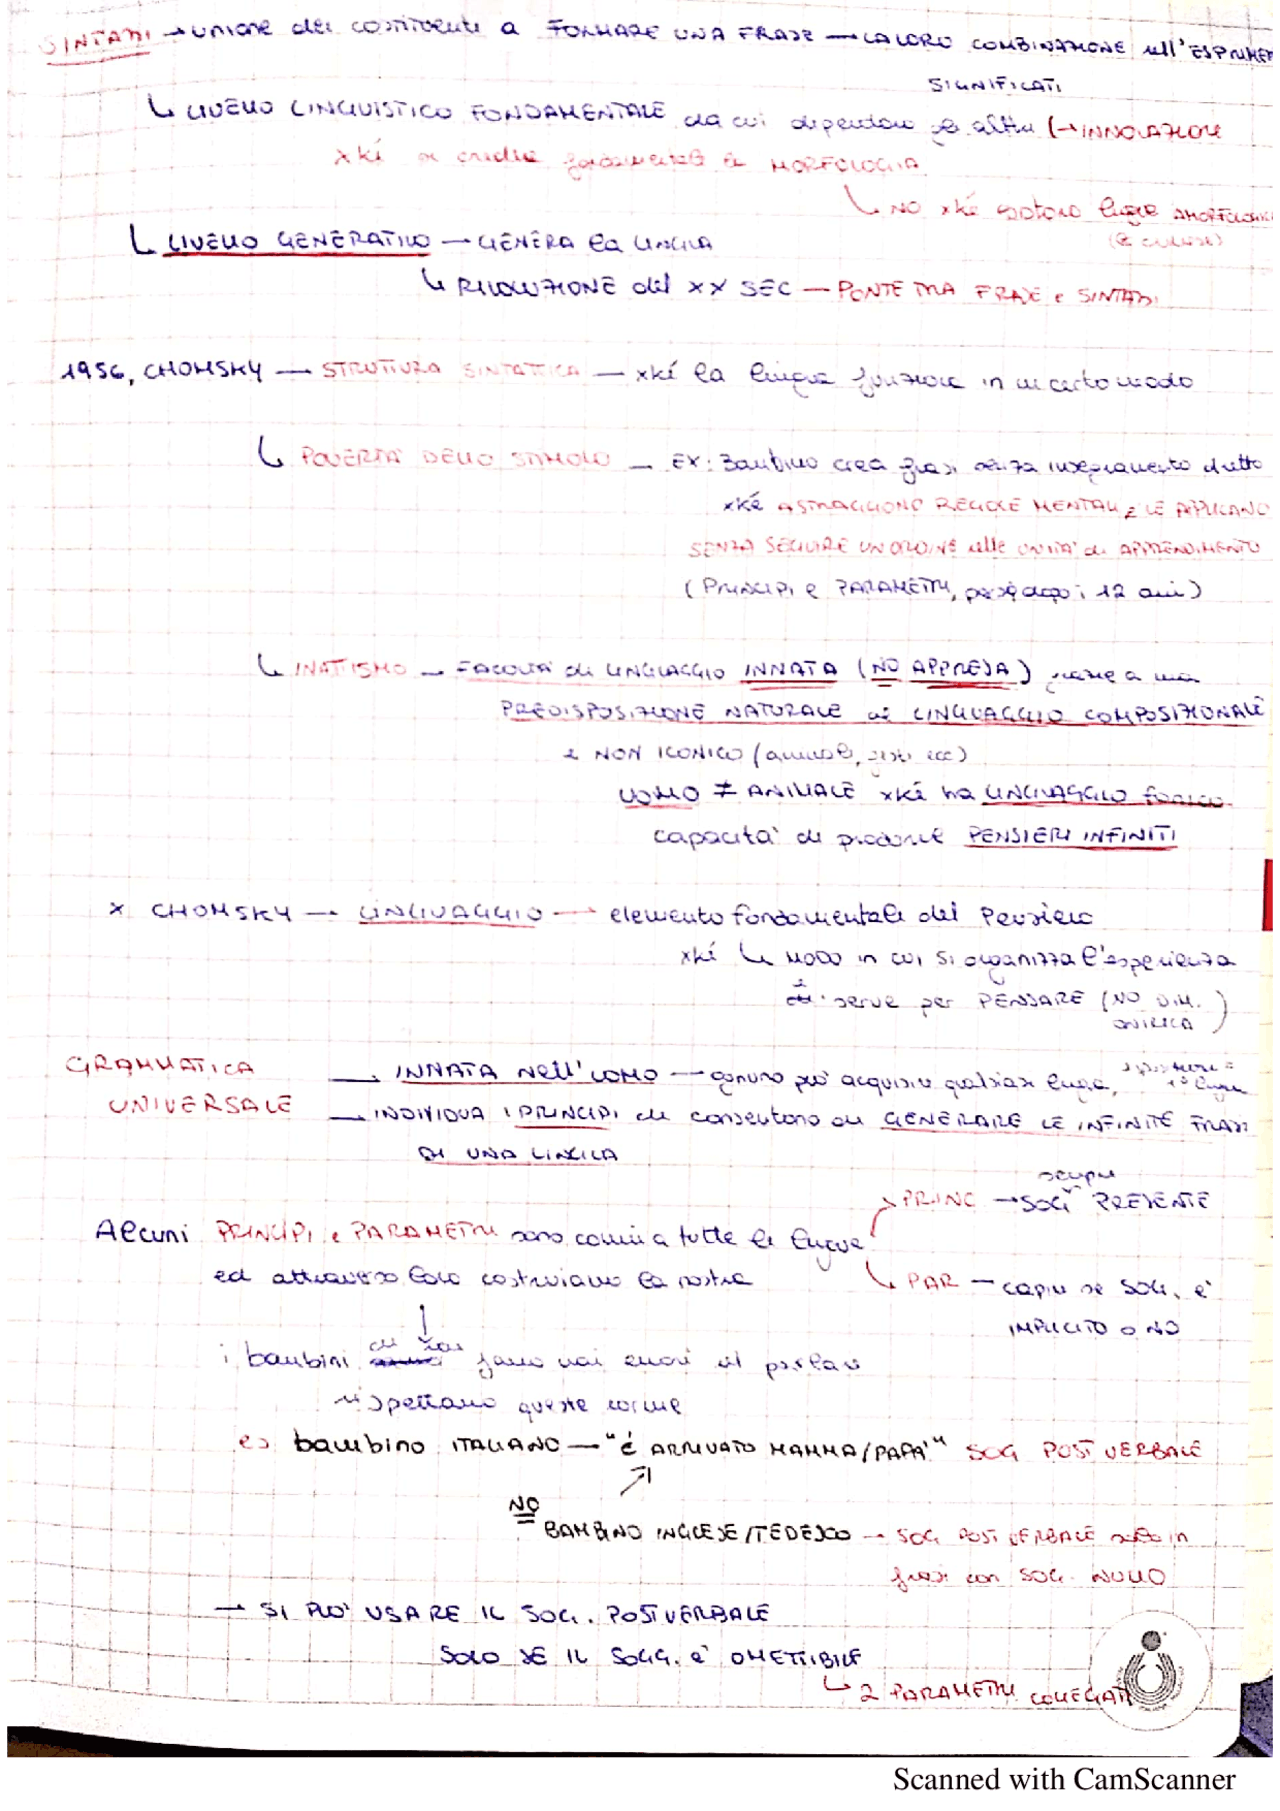 SINTASSI → unione dei costituenti a FORMARE UNA FRASE — LA LORO COMBINAZIONE nell'ESPRIMERE
SIGNIFICATI
↳ LIVELLO LINGUISTICO FONDAMENTALE da cui dipendono gli altri (→ INNOVAZIONE
xké si credeva fondamentale la MORFOLOGIA
↳ NO xké esistono lingue AMORFOLOGICHE
(il cinese)
↳ LIVELLO GENERATIVO — GENERA la LINGUA
↳ RIVOLUZIONE del XX SEC — PONTE TRA FRASE e SINTASSI
1956, CHOMSKY — STRUTTURA SINTATTICA — xké la lingua funziona in un certo modo
↳ POVERTÀ DELLO STIMOLO — EX: Bambino crea frasi senza insegnamento diretto
xké ASTRAGGONO REGOLE MENTALI e LE APPLICANO
SENZA SEGUIRE UN ORDINE nelle unità di APPRENDIMENTO
(PRINCIPI e PARAMETRI, dopo i 12 anni)
↳ INATISMO — FACOLTÀ di LINGUAGGIO INNATA (NO APPRESA) grazie a una
PREDISPOSIZIONE NATURALE al LINGUAGGIO COMPOSIZIONALE
e NON ICONICO (animali, gesti ecc)
UOMO ≠ ANIMALE xké ha LINGUAGGIO fonico
capacità di produrre PENSIERI INFINITI
x CHOMSKY — LINGUAGGIO → elemento fondamentale del Pensiero
xké ↳ MODO in cui si organizza l'esperienza
è serve per PENSARE (NO DIM.
ONIRICA)
GRAMMATICA
— INNATA nell'UOMO — ognuno può acquisire qualsiasi lingua, 1° lingua
UNIVERSALE — INDIVIDUA I PRINCIPI che consentono di GENERARE LE INFINITE FRASI
DI UNA LINGUA
sempre
PRINC → SOGG PRESENTE
Alcuni PRINCIPI e PARAMETRI sono comuni a tutte le lingue
ed attraverso loro costruiamo la nostra
↳ PAR — capire se SOGG. è
IMPLICITO O NO
↓
i bambini di fanno mai errori nel parlare
rispettano queste norme
es bambino ITALIANO — "È ARRIVATO MAMMA/PAPÀ" SOG POSTVERBALE
NO
BAMBINO INGLESE/TEDESCO → SOG POSTVERBALE solo in
frasi con SOG. NULLO
→ SI PUÒ USARE IL SOG. POSTVERBALE
SOLO SE IL SOGG. è OMETTIBILE
↳ 2 PARAMETRI COLLEGATI
Scanned with CamScanner